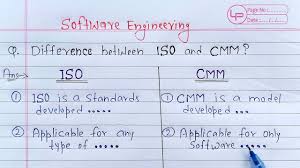 Software Engineering
Page No:
Date:
Q. Difference between ISO and CMM?
Ans→ ISO CMM
① ISO is a Standards ① CMM is a model
developed ..... developed ....
② Applicable for any ② Applicable for only
type of ..... Software .....